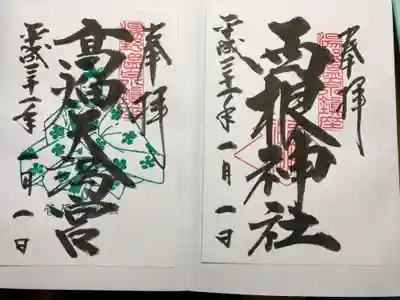 奉拝
西根神社
平成三十一年一月一日
奉拝
高畑天満宮
平成三十一年一月一日